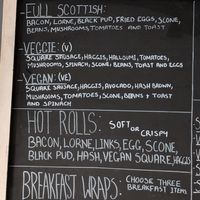 -FULL SCOTTISH:
BACON, LORNE, BLACK PUD, FRIED EGGS, SCONE,
BEANS, MUSHROOMS TOMATOES AND TOAST
-VEGGIE: (V)
SQUARE SAUSAGE, HAGGIS, HALLOUMI, TOMATOES,
MUSHROOMS, SPINACH, SCONE, BEANS, TOAST AND EGGS
-VEGAN: (VE)
SQUARE SAUSAGE, HAGGIS, AVOCADO, HASH BROWN,
MUSHROOMS, TOMATOES, SCONE, BEANS + TOAST
AND SPINACH
HOT ROLLS: SOFT OR CRISPY
BACON, LORNE, LINKS, EGG, SCONE,
BLACK PUD, HASH, VEGAN SQUARE, HAGGIS
BREAKFAST WRAPS: CHOOSE THREE
BREAKFAST ITEMS